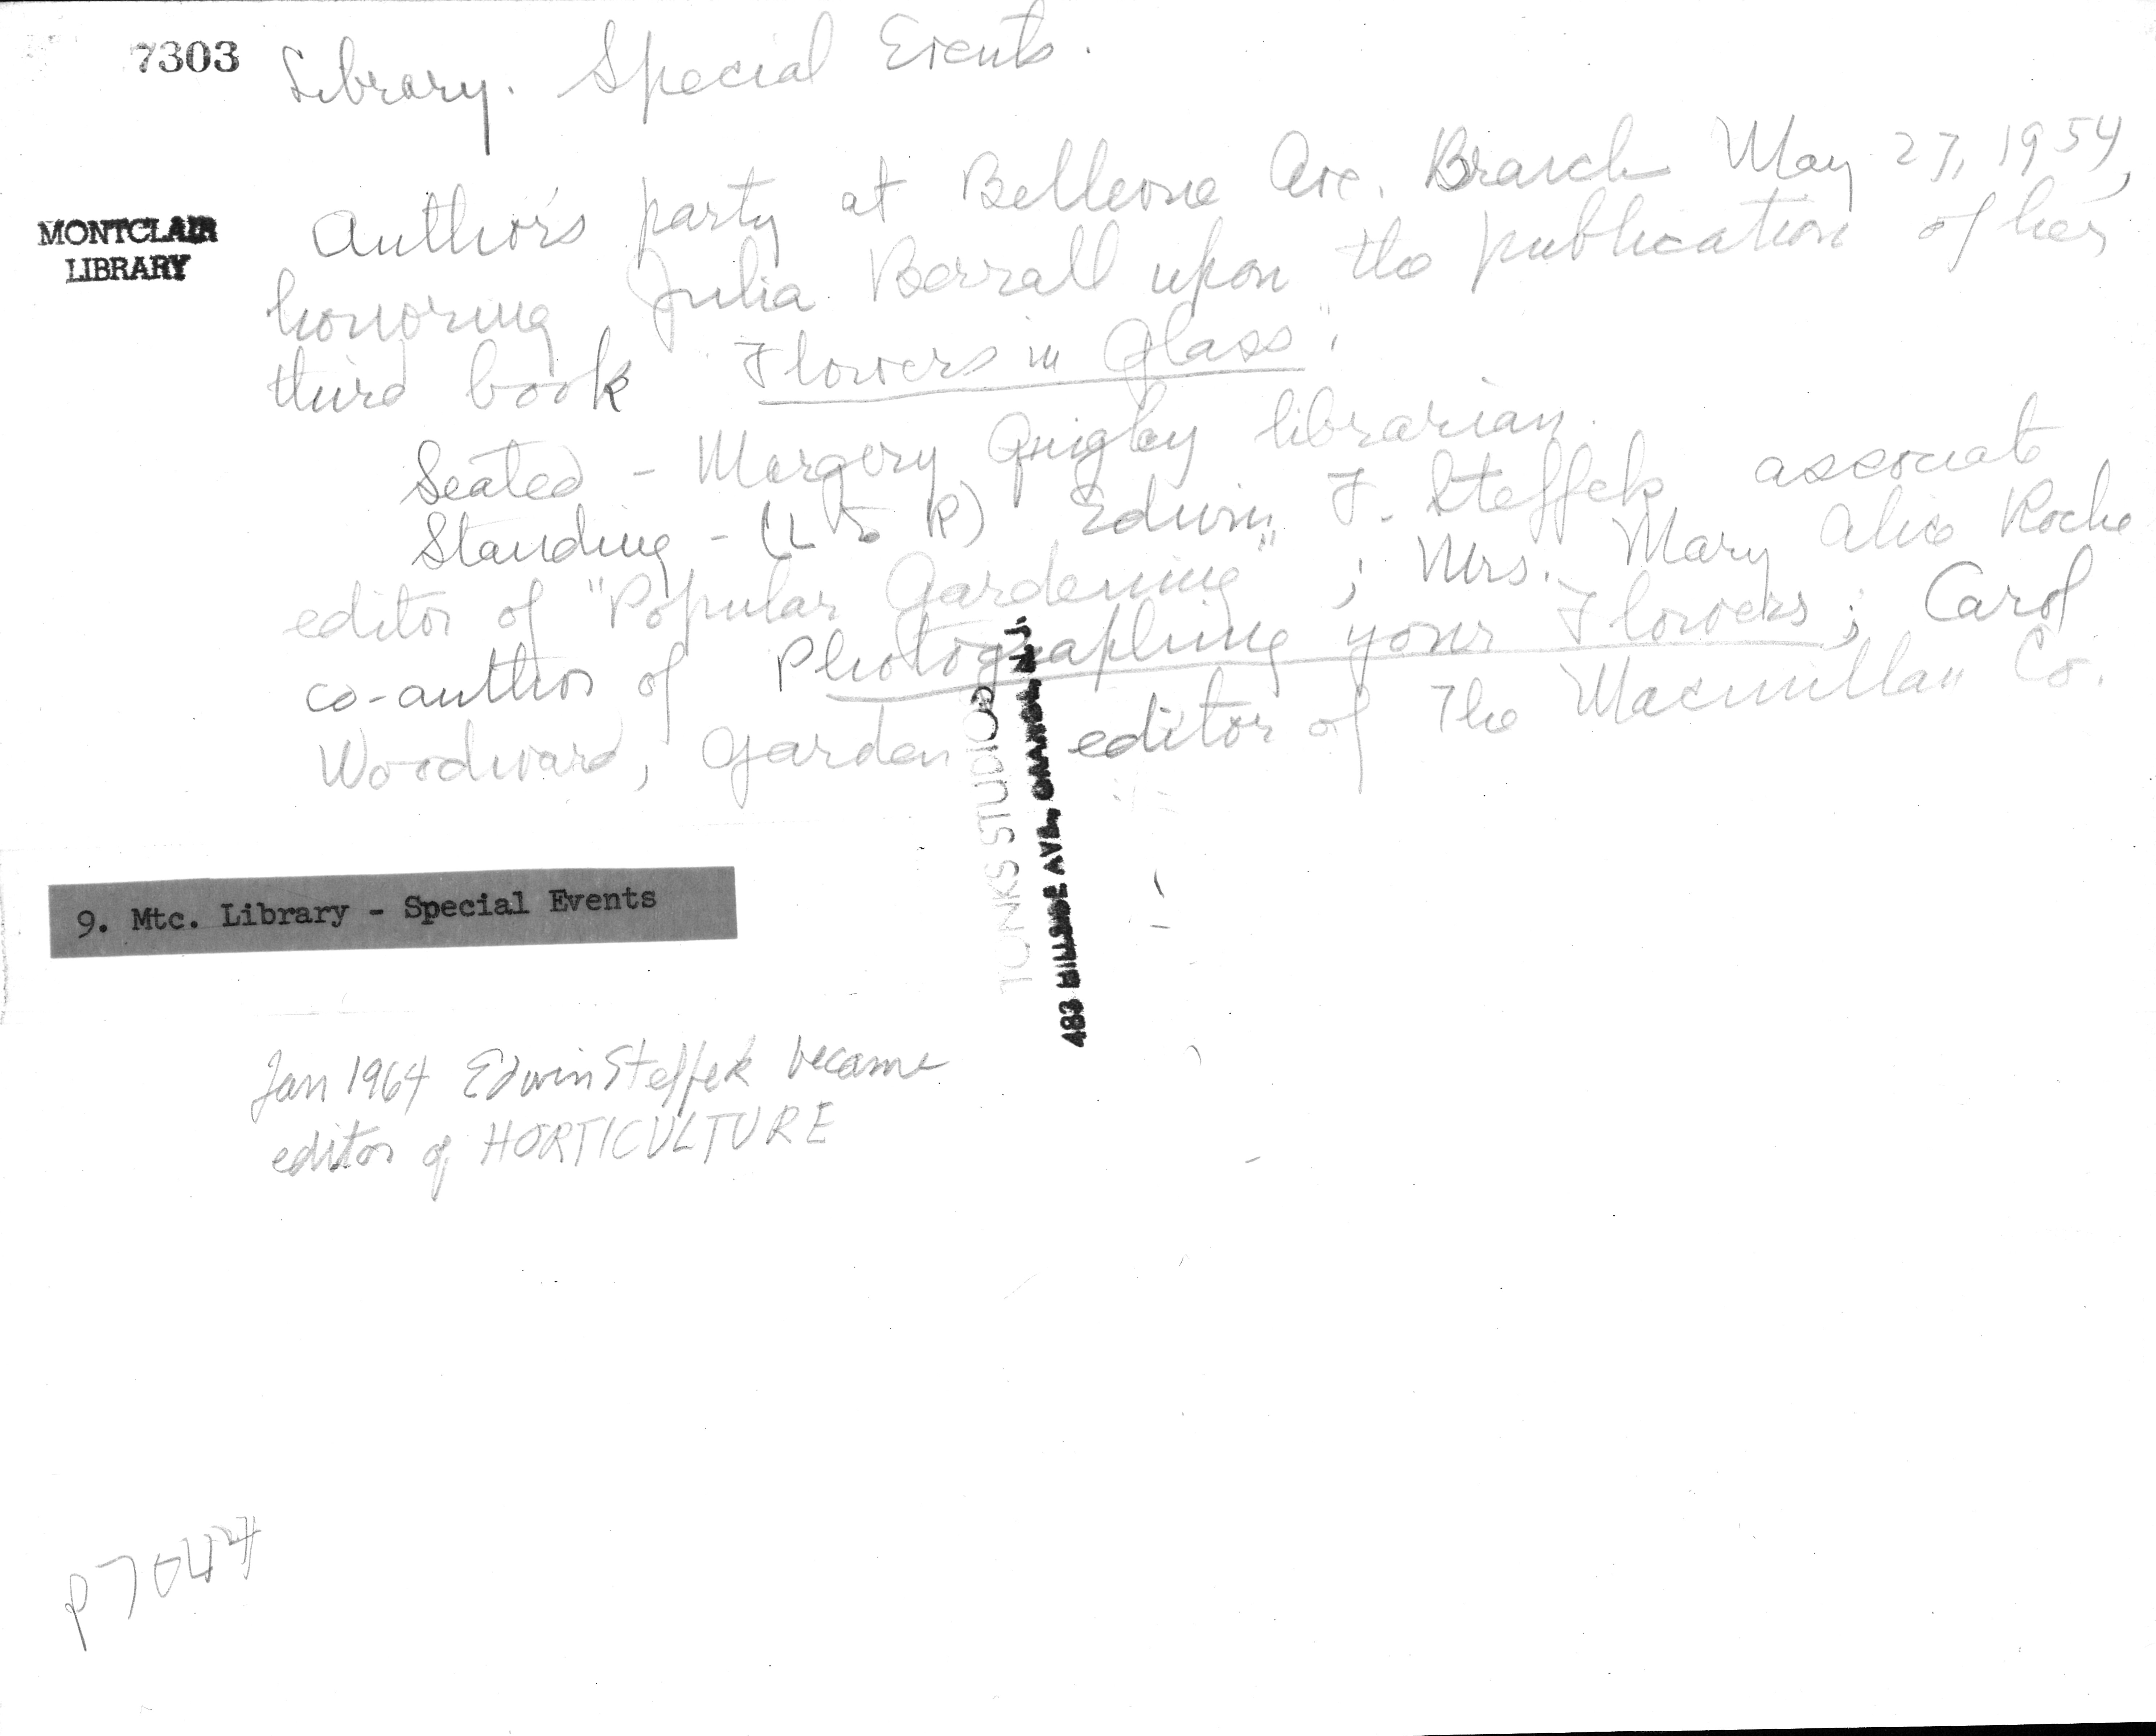 7303
Library. Special Events.
MONTCLAIR
LIBRARY
Author's party at Bellevue Ave. Branch May 27, 1954,
honoring Julia Berrall upon the publication of her
third book "Flowers in Glass".
Seated - Margery Quigley librarian.
Standing - (L to R) Edwin F. Steffek associate
editor of "Popular Gardening"; Mrs. Mary Alice Roche
co-author of Photographing your Flowers; Carol
Woodward, garden editor of The Macmillan Co.
TONKS STUDIOS
483 HILLSIDE AVE., ORANGE, N. J.
9. Mtc. Library - Special Events
Jan 1964 Edwin Steffek became
editor of HORTICULTURE
P7044